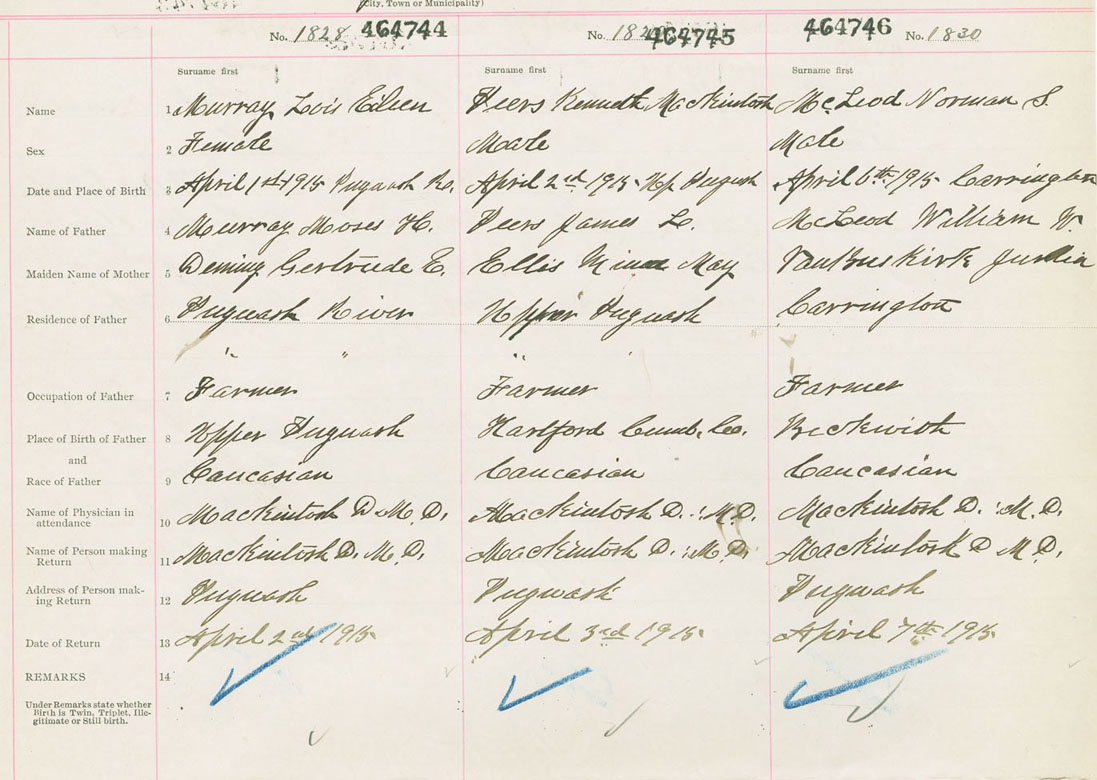 City, Town or Municipality)
No. 1828 464744 No. 464745 464746 No. 1830
Surname first Surname first Surname first
Name 1 Murray Lois Eileen Peers Kenneth Mackintosh McLeod Norman S.
Sex 2 Female Male Male
Date and Place of Birth 3 April 1st 1915 Pugwash Rv. April 2nd 1915 Up Pugwash April 6th 1915 Carrington
Name of Father 4 Murray Moses H. Peers James L. McLeod William W.
Maiden Name of Mother 5 Deming Gertrude E. Ellis May VanBuskirk
Residence of Father 6 Pugwash River Upper Pugwash Carrington
" " "
Occupation of Father 7 Farmer Farmer Farmer
Place of Birth of Father 8 Upper Pugwash Hartford Cumb. Co. Beckwith
and
Race of Father 9 Caucasian Caucasian Caucasian
Name of Physician in
attendance 10 Mackintosh D. M. D. Mackintosh D. : M. D. Mackintosh D. : M. D.
Name of Person making
Return 11 Mackintosh D. M. D. Mackintosh D. : M. D. Mackintosh D M. D.
Address of Person mak-
ing Return 12 Pugwash Pugwash Pugwash
Date of Return 13 April 2nd 1915 April 3rd 1915 April 7th 1915
REMARKS 14
Under Remarks state whether
Birth is Twin, Triplet, Ille-
gitimate or Still birth.